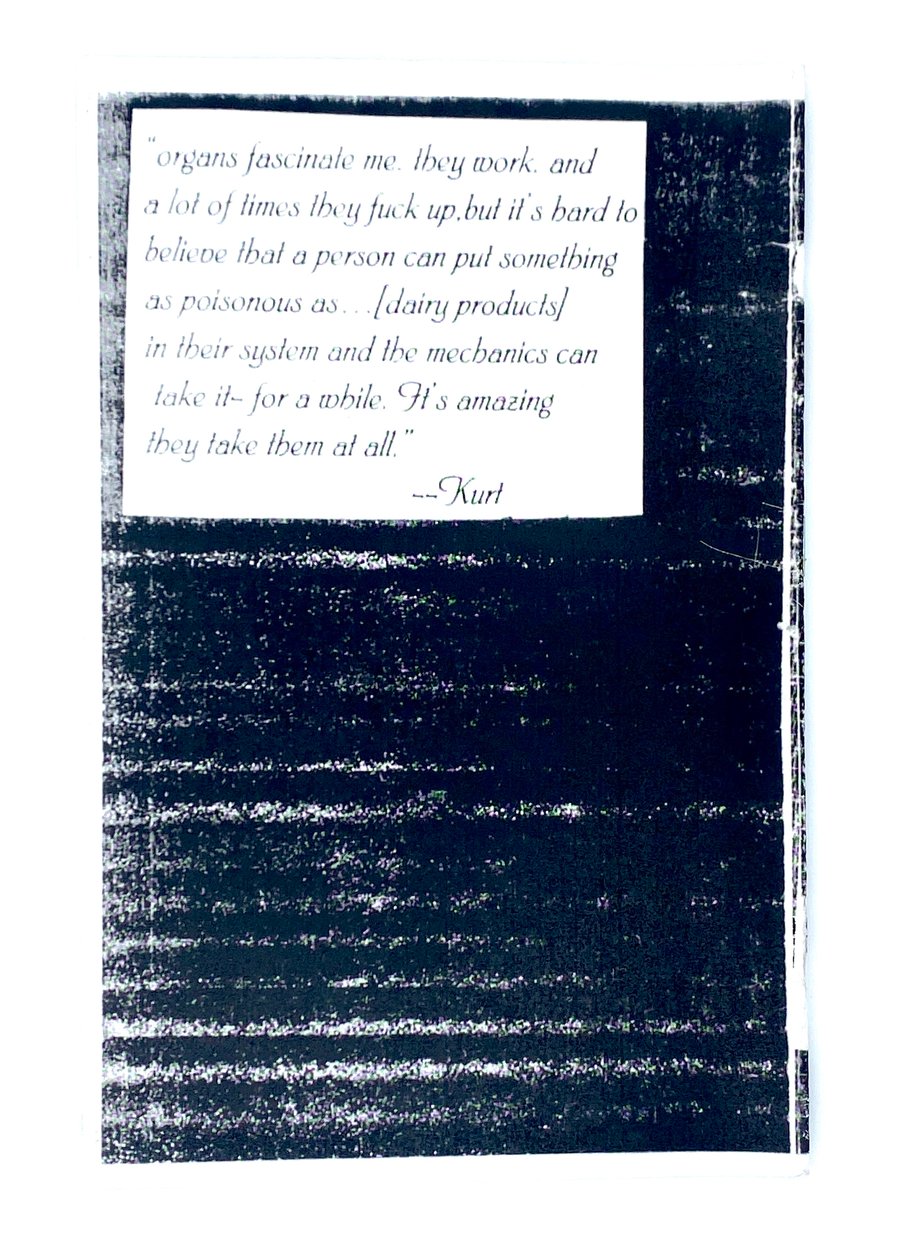 "organs fascinate me. they work. and
a lot of times they fuck up,but it's hard to
believe that a person can put something
as poisonous as...[dairy products]
in their system and the mechanics can
take it- for a while. It's amazing
they take them at all."
--Kurt